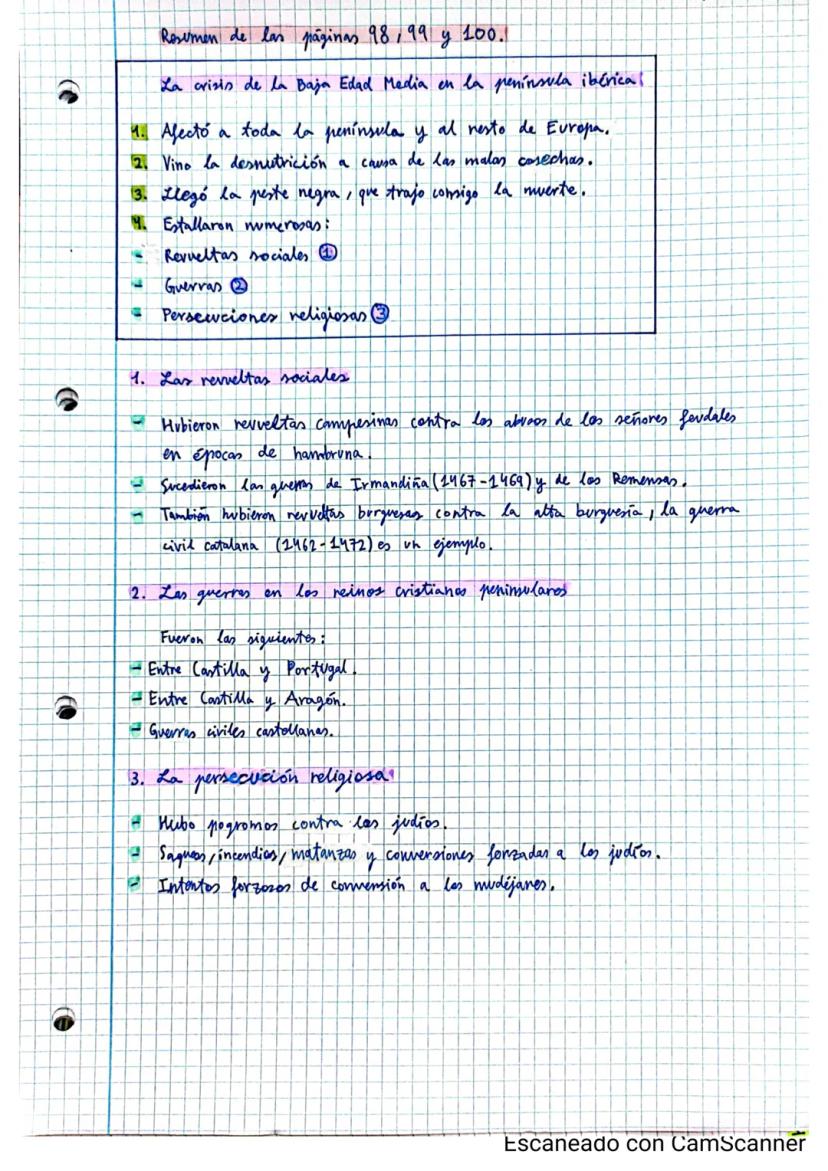 Resumen de las páginas 98, 99 y 100.
La crisis de la Baja Edad Media en la península ibérica:
1. Afectó a toda la península y al resto de Europa.
2. Vino la desnutrición a causa de las malas cosechas.
3. Llegó la peste negra, que trajo consigo la muerte.
4. Estallaron numerosas:
- Revueltas sociales ①
- Guerras ②
- Persecuciones religiosas ③
1. Las revueltas sociales
- Hubieron revueltas campesinas contra los abusos de los señores feudales
en épocas de hambruna.
- Sucedieron las guerras de Irmandiña (1467-1469) y de los Remensas.
- También hubieron revueltas burguesas contra la alta burguesía, la guerra
civil catalana (1462-1472) es un ejemplo.
2. Las guerras en los reinos cristianos peninsulares
Fueron las siguientes:
- Entre Castilla y Portugal.
- Entre Castilla y Aragón.
- Guerras civiles castellanas.
3. La persecución religiosa
- Hubo pogromos contra los judíos.
- Saqueos, incendios, matanzas y conversiones forzadas a los judíos.
- Intentos forzosos de conversión a los mudéjares.
Escaneado con CamScanner